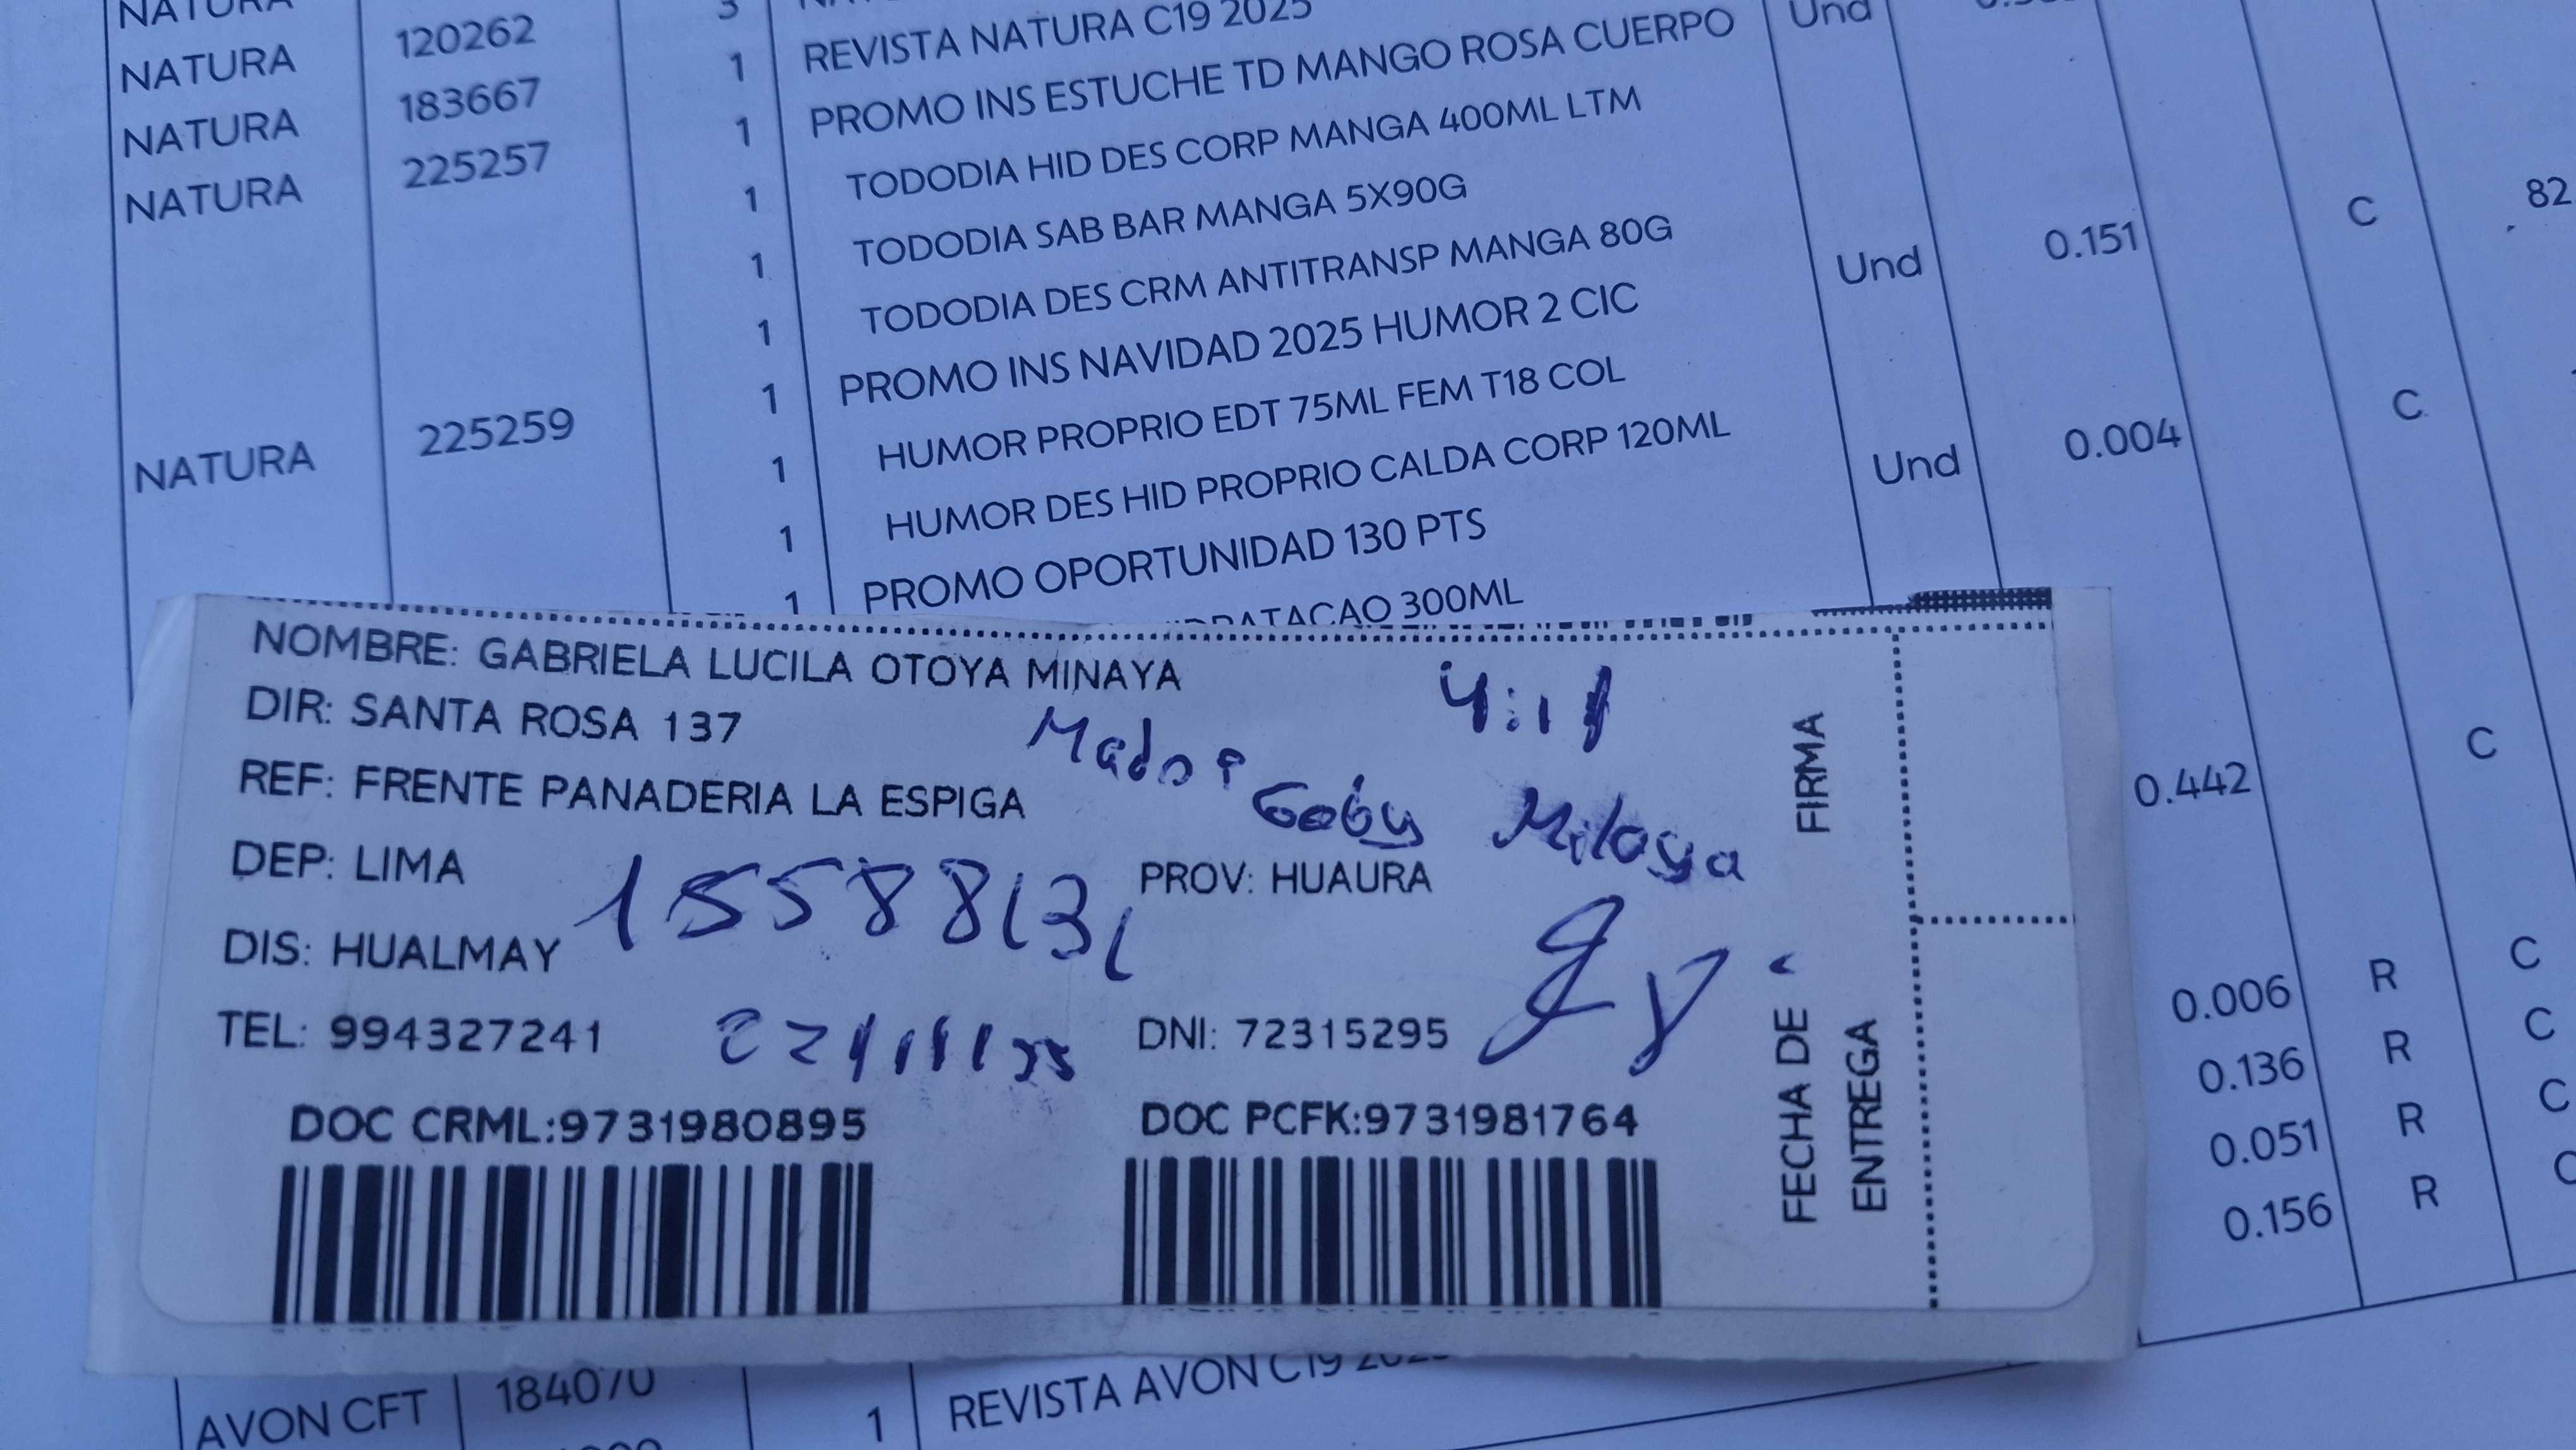 NATURA
NATURA 120262 1 REVISTA NATURA C19 2025
NATURA 183667 1 PROMO INS ESTUCHE TD MANGO ROSA CUERPO Und
NATURA 225257 1 TODODIA HID DES CORP MANGA 400ML LTM
1 TODODIA SAB BAR MANGA 5X90G
1 TODODIA DES CRM ANTITRANSP MANGA 80G
1 PROMO INS NAVIDAD 2025 HUMOR 2 CIC Und 0.151 C 82
NATURA 225259 1 HUMOR PROPRIO EDT 75ML FEM T18 COL
1 HUMOR DES HID PROPRIO CALDA CORP 120ML
1 PROMO OPORTUNIDAD 130 PTS Und 0.004 C
300ML
NOMBRE: GABRIELA LUCILA OTOYA MINAYA
DIR: SANTA ROSA 137
REF: FRENTE PANADERIA LA ESPIGA
DEP: LIMA
PROV: HUAURA
DIS: HUALMAY
TEL: 994327241
DNI: 72315295
DOC CRML:9731980895
DOC PCFK:9731981764
FIRMA
FECHA DE
ENTREGA
0.442 C
0.006 R C
0.136 R C
0.051 R C
0.156 R
AVON CFT 184070 1 REVISTA AVON C19